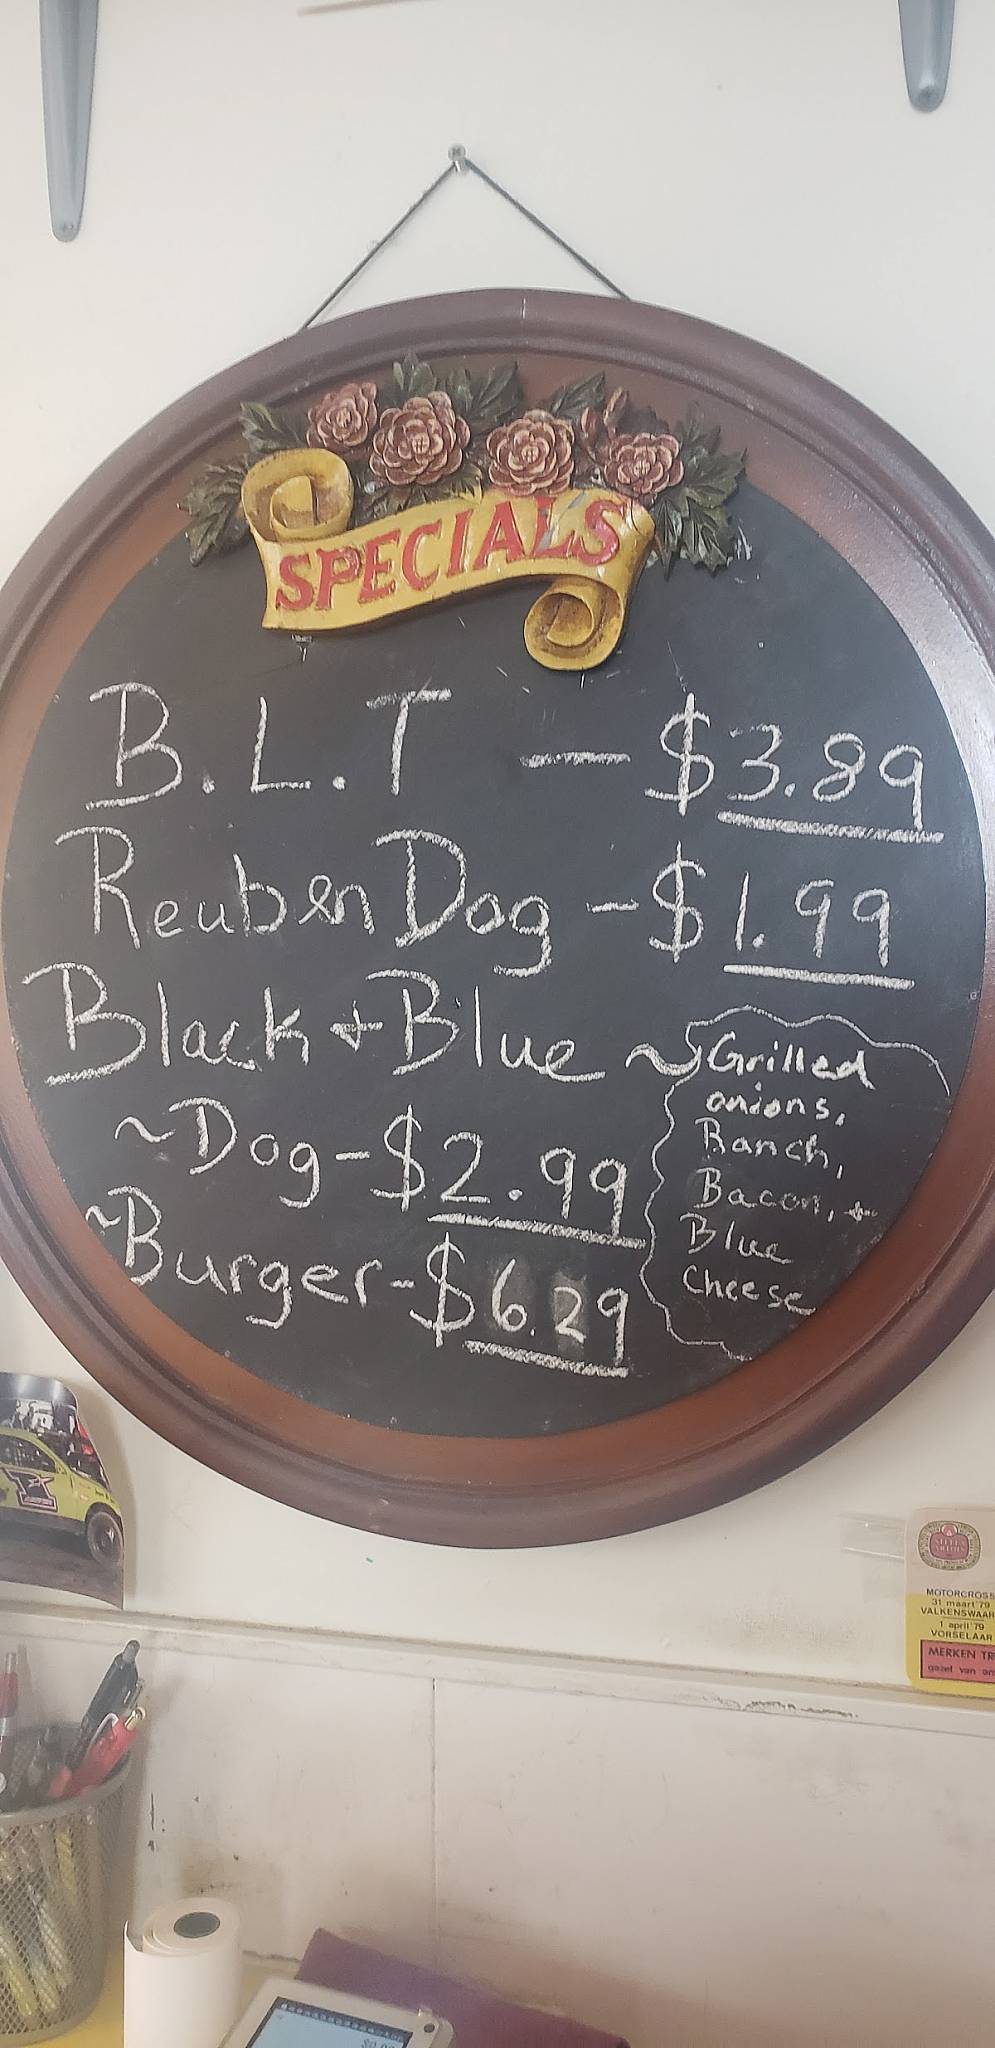 SPECIALS
B.L.T - $3.89
Reuben Dog - $1.99
Black + Blue ~
~Dog - $2.99
~Burger - $6.29
Grilled
onions,
Ranch,
Bacon, +
Blue
Cheese
MOTORCROSS
31 maart '79
VALKENSWAAR
1 april '79
VORSELAAR
MERKEN TR
gezet van om